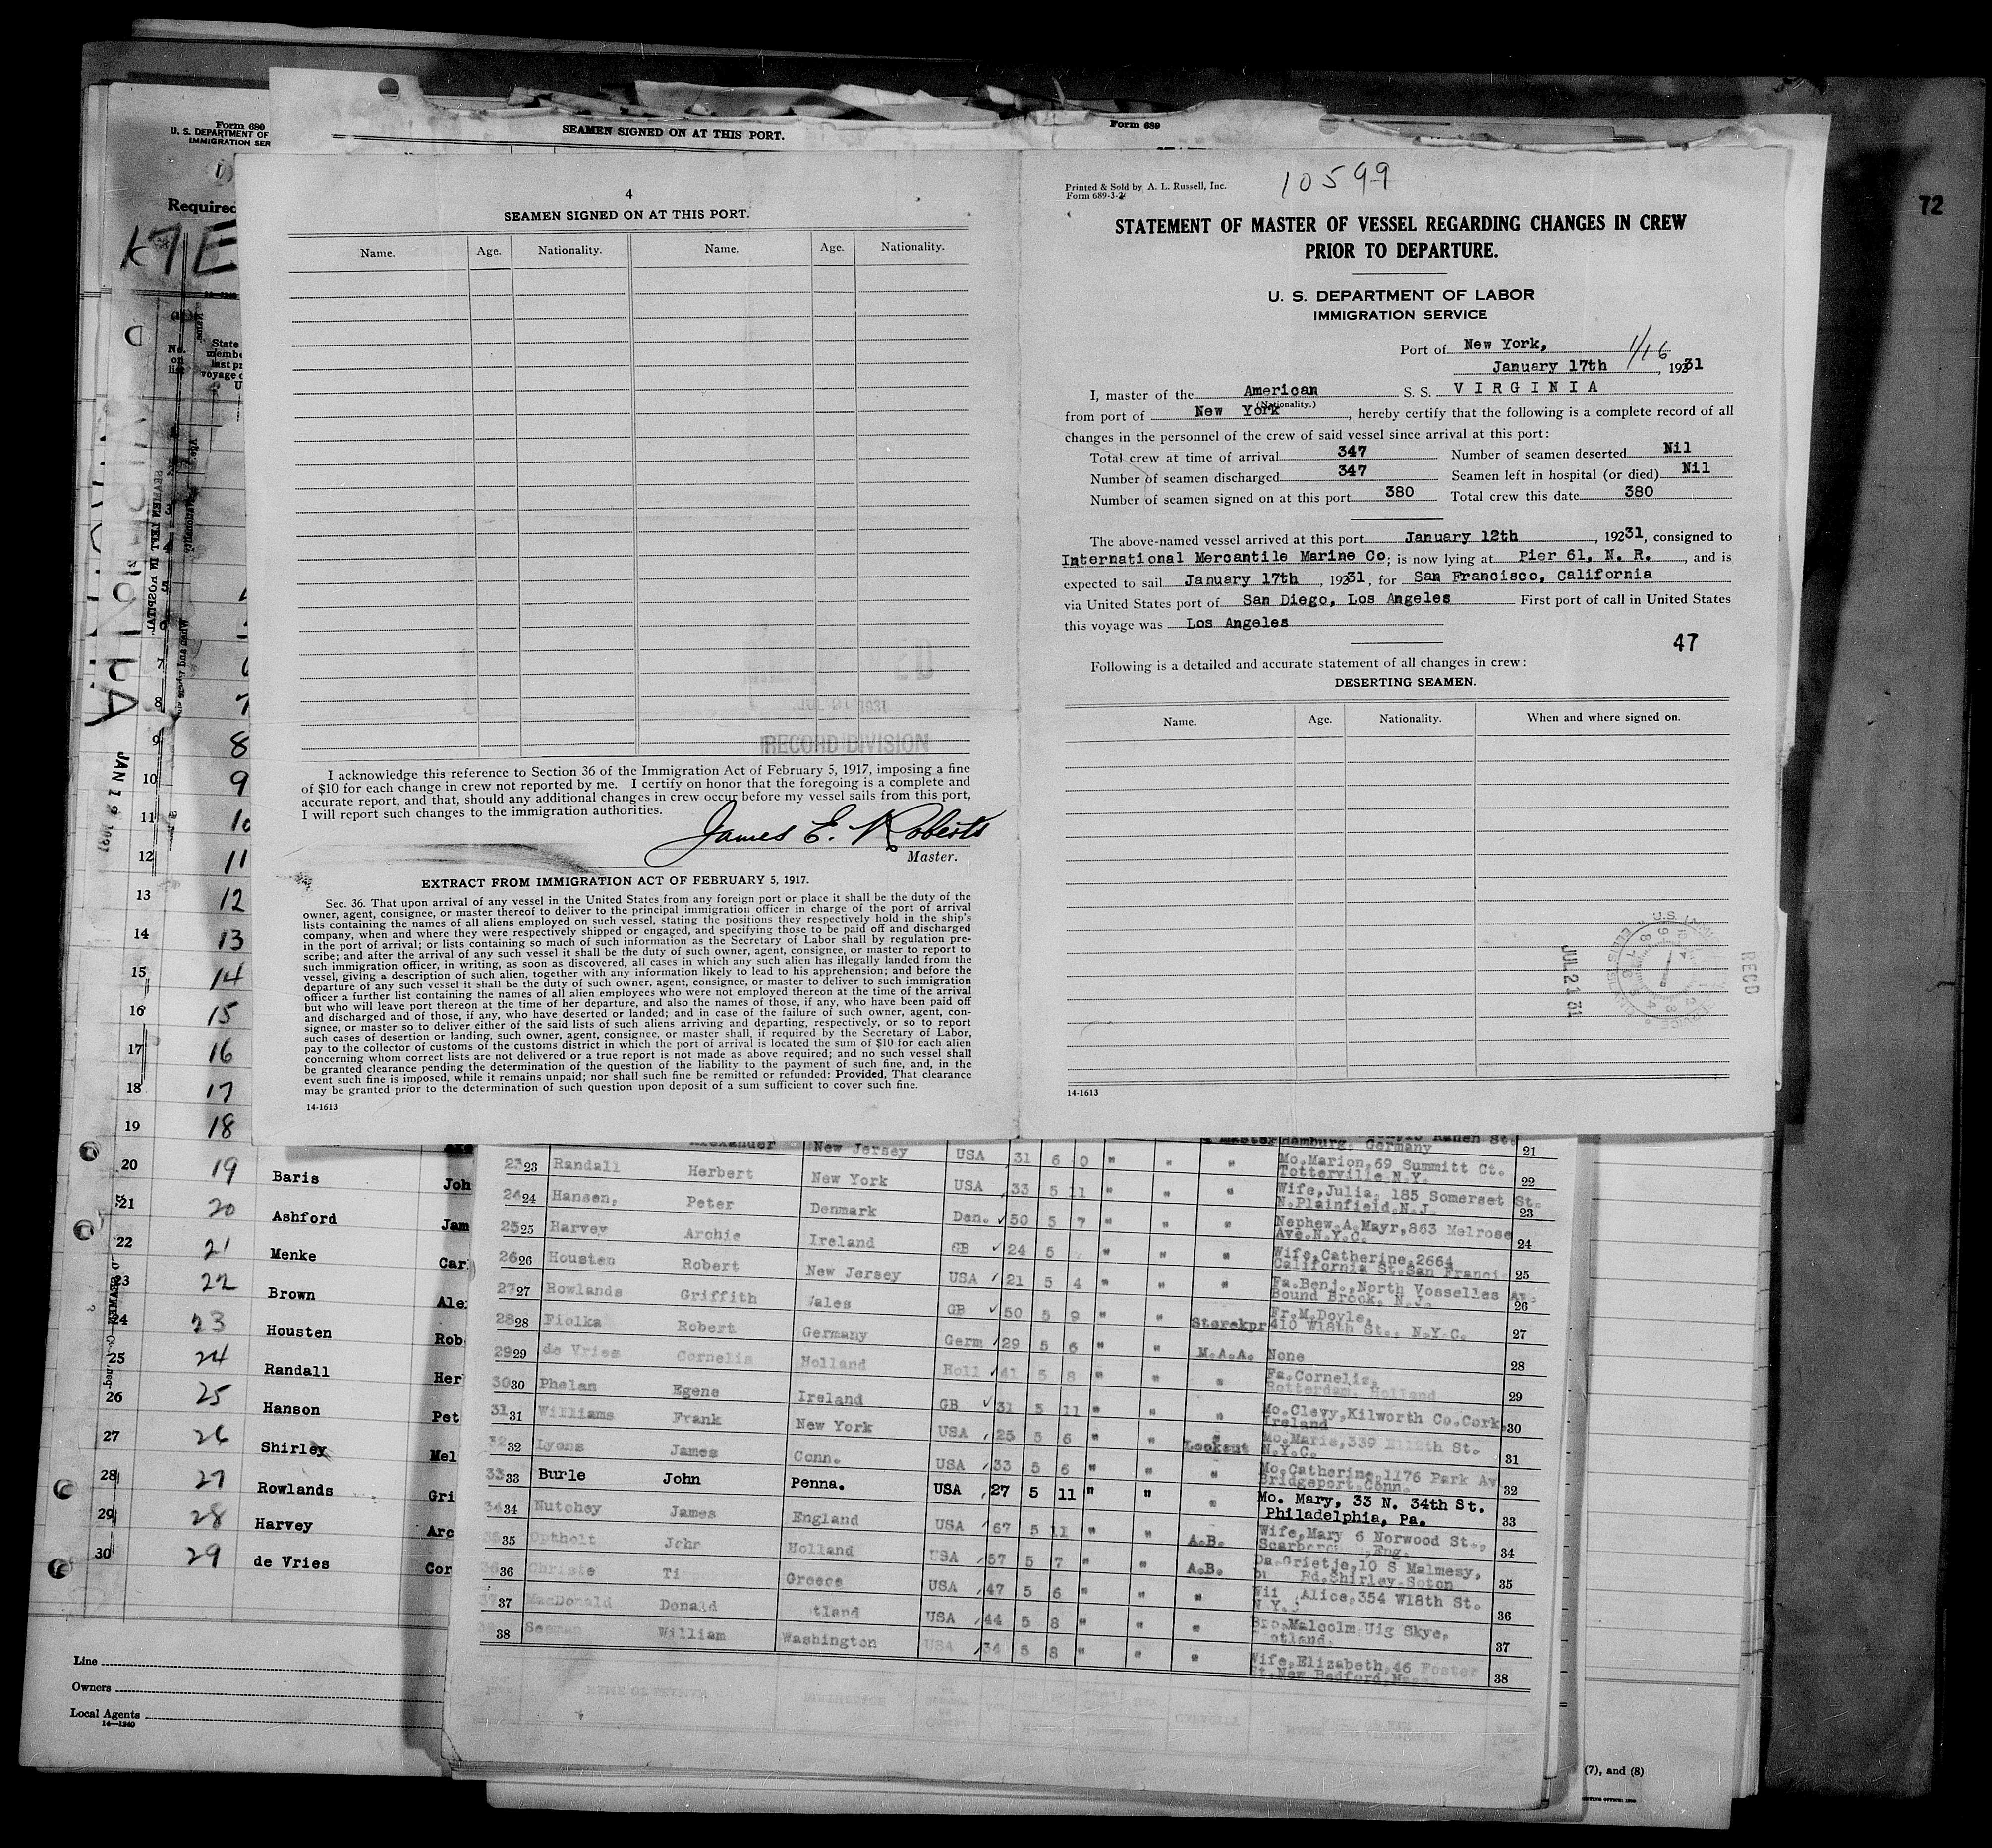 72
Form 680
U. S. DEPARTMENT OF
IMMIGRATION SER
Required
SEAMEN SIGNED ON AT THIS PORT.
Form 689
4
SEAMEN SIGNED ON AT THIS PORT.
Name. Age. Nationality. Name. Age. Nationality.
JUL 21 1931
RECORD DIVISION
I acknowledge this reference to Section 36 of the Immigration Act of February 5, 1917, imposing a fine
of $10 for each change in crew not reported by me. I certify on honor that the foregoing is a complete and
accurate report, and that, should any additional changes in crew occur before my vessel sails from this port,
I will report such changes to the immigration authorities.
James E. Roberts
Master.
EXTRACT FROM IMMIGRATION ACT OF FEBRUARY 5, 1917.
Sec. 36. That upon arrival of any vessel in the United States from any foreign port or place it shall be the duty of the
owner, agent, consignee, or master thereof to deliver to the principal immigration officer in charge of the port of arrival
lists containing the names of all aliens employed on such vessel, stating the positions they respectively hold in the ship's
company, when and where they were respectively shipped or engaged, and specifying those to be paid off and discharged
in the port of arrival; or lists containing so much of such information as the Secretary of Labor shall by regulation pre-
scribe; and after the arrival of any such vessel it shall be the duty of such owner, agent, consignee, or master to report to
such immigration officer, in writing, as soon as discovered, all cases in which any such alien has illegally landed from the
vessel, giving a description of such alien, together with any information likely to lead to his apprehension; and before the
departure of any such vessel it shall be the duty of such owner, agent, consignee, or master to deliver to such immigration
officer a further list containing the names of all alien employees who were not employed thereon at the time of the arrival
but who will leave port thereon at the time of her departure, and also the names of those, if any, who have been paid off
and discharged and of those, if any, who have deserted or landed; and in case of the failure of such owner, agent, con-
signee, or master so to deliver either of the said lists of such aliens arriving and departing, respectively, or so to report
such cases of desertion or landing, such owner, agent, consignee, or master shall, if required by the Secretary of Labor,
pay to the collector of customs of the customs district in which the port of arrival is located the sum of $10 for each alien
concerning whom correct lists are not delivered or a true report is not made as above required; and no such vessel shall
be granted clearance pending the determination of the question of the liability to the payment of such fine, and, in the
event such fine is imposed, while it remains unpaid; nor shall such fine be remitted or refunded: Provided, That clearance
may be granted prior to the determination of such question upon deposit of a sum sufficient to cover such fine.
14-1613
Printed & Sold by A. L. Russell, Inc.
Form 689-3-24
10599
STATEMENT OF MASTER OF VESSEL REGARDING CHANGES IN CREW
PRIOR TO DEPARTURE.
U. S. DEPARTMENT OF LABOR
IMMIGRATION SERVICE
Port of New York, 1/16
January 17th, 1931
I, master of the American S. S. VIRGINIA
(Nationality.)
from port of New York, hereby certify that the following is a complete record of all
changes in the personnel of the crew of said vessel since arrival at this port:
Total crew at time of arrival 347 Number of seamen deserted Nil
Number of seamen discharged 347 Seamen left in hospital (or died) Nil
Number of seamen signed on at this port 380 Total crew this date 380
The above-named vessel arrived at this port January 12th, 1931, consigned to
International Mercantile Marine Co; is now lying at Pier 61, N. R., and is
expected to sail January 17th, 1931, for San Francisco, California
via United States port of San Diego, Los Angeles First port of call in United States
this voyage was Los Angeles
47
Following is a detailed and accurate statement of all changes in crew:
DESERTING SEAMEN.
Name. Age. Nationality. When and where signed on.
JUL 21 31
RECD
14-1613
9 8
10 9
11 10
12 11
13 12
14 13
15 14
16 15
17 16
18 17
19 18
20 19 Baris Joh
21 20 Ashford Jam
22 21 Menke Car
23 22 Brown Ale
24 23 Housten Rob
25 24 Randall Her
26 25 Hanson Pet
27 26 Shirley Mel
28 27 Rowlands Gri
29 28 Harvey Arc
30 29 de Vries Cor
Line
Owners
Local Agents
14-1240
Alexander New Jersey USA 31 6 0 " " " Hamburg. Germany 21
23 23 Randall Herbert New York USA 33 5 11 " " " Mo.Marion,69 Summitt Ct. Totterville N.Y. 22
24 24 Hansen, Peter Denmark Den. 50 5 7 " " " Wife,Julia, 185 Somerset St. N.Plainfield.N.J. 23
25 25 Harvey Archie Ireland GB 24 5 " " " Nephew.A.Mayr,863 Melrose Ave.N.Y.C. 24
26 26 Housten Robert New Jersey USA 21 5 4 " " " Wife,Catherine,2664 California St.San Franci 25
27 27 Rowlands Griffith Wales GB 50 5 9 " " Fa.Benj.,North Vosselles Av. Bound Brook, N.J. 26
28 28 Fiolka Robert Germany Germ 29 5 6 " " Storekpr Fr.M.Doyle, 410 W18th St., N.Y.C. 27
29 29 de Vries Cornelis Holland Holl 41 5 8 " " M.A.A. None 28
30 30 Phelan Egene Ireland GB 31 5 11 " " " Fa.Cornelis, Rotterdam. Holland 29
31 31 Williams Frank New York USA 25 5 6 " " " Mo.Clevy,Kilworth Co.Cork Ireland 30
32 32 Lyons James Conn. USA 33 5 6 " " Lookout Mo.Marie,339 St. N.Y.C. 31
33 33 Burle John Penna. USA 27 5 11 " " " Mo.Catherine,1176 Park Av Bridgeport,Conn. 32
34 34 Nutchey James England USA 67 5 11 " " " Mo. Mary, 33 N. 34th St. Philadelphia, Pa. 33
35 Optholt John Holland USA 57 5 7 " " A.B. Wife,Mary 6 Norwood St., Eng. 34
36 Christe Greece USA 47 5 6 " " A.B. Da.Grietje,10 S Malmesy, Rd.Shirley.Soton 35
37 MacDonald Donald USA 44 5 8 " " " Alice,354 W18th St. N.Y. 36
38 Seeman William Washington USA 34 5 8 " " " Bro.Malcolm Uig Skye, 37
Wife,Elizabeth,46 Foster St.New Bedford,Mass. 38
(7), and (8)
JAN 12 1931